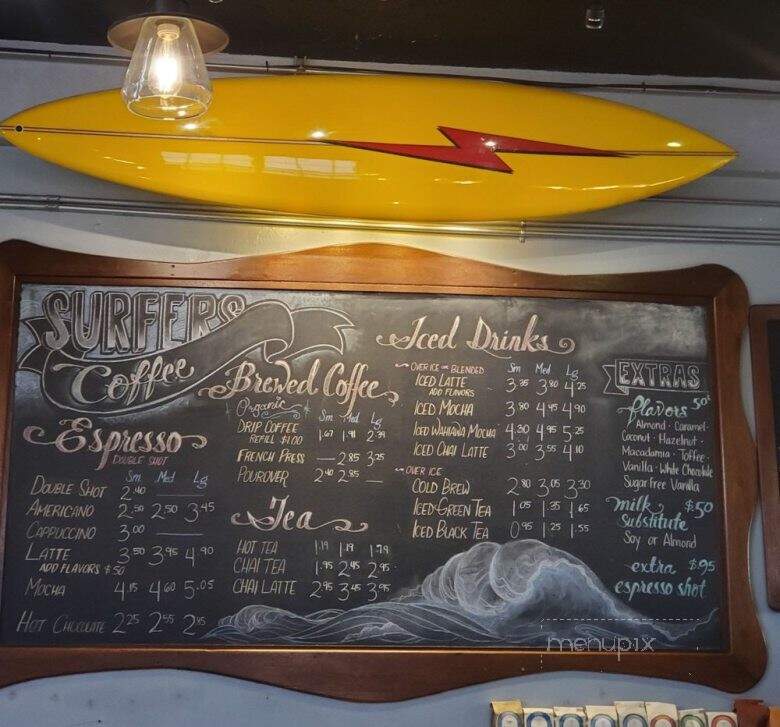 SURFERS
Coffee
Espresso
DOUBLE SHOT
Sm Md Lg
DOUBLE SHOT 2.40
AMERICANO 2.50 2.50 3.45
CAPPUCCINO 3.00
LATTE 3.50 3.95 4.90
ADD FLAVORS $.50
MOCHA 4.15 4.60 5.05
HOT CHOCOLATE 2.25 2.55 2.95
Brewed Coffee
Organic
Sm Med Lg
DRIP COFFEE 1.67 1.91 2.39
REFILL $1.00
FRENCH PRESS — 2.85 3.25
POUROVER 2.40 2.85 —
Tea
HOT TEA 1.19 1.19 1.79
CHAI TEA 1.95 2.45 2.95
CHAI LATTE 2.95 3.45 3.95
Iced Drinks
OVER ICE OR BLENDED Sm Med Lg
ICED LATTE 3.35 3.80 4.25
ADD FLAVORS
ICED MOCHA 3.80 4.45 4.90
ICED WAHIAWA MOCHA 4.30 4.95 5.25
ICED CHAI LATTE 3.00 3.55 4.10
OVER ICE
COLD BREW 2.80 3.05 3.30
ICED GREEN TEA 1.05 1.35 1.65
ICED BLACK TEA 0.95 1.25 1.55
EXTRAS
flavors 50¢
Almond · Caramel ·
Coconut · Hazelnut ·
Macadamia · Toffee ·
Vanilla · White Chocolate
Sugar Free Vanilla
milk $.50
Substitute
Soy or Almond
extra $.95
espresso shot
menupix